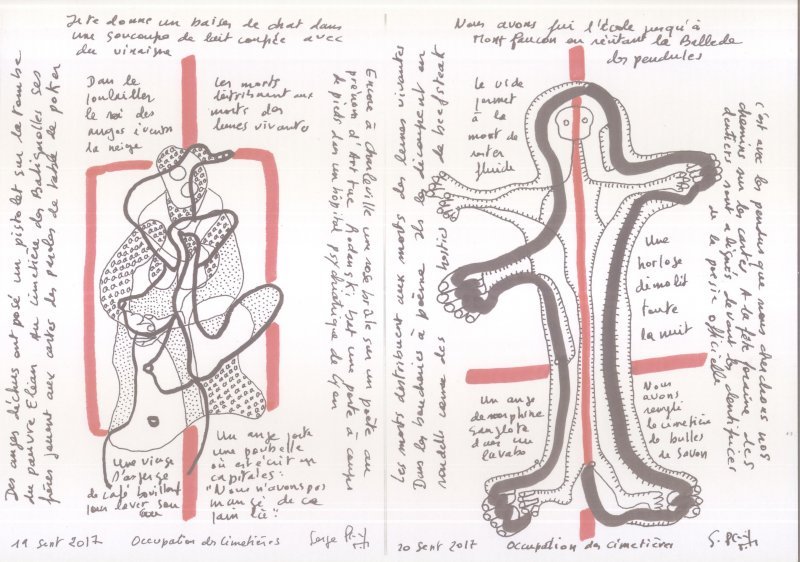 Je te donne un baiser de chat dans
une soucoupe de lait coupée avec
du vinaigre
Dans le
poulailler
le roi des
anges invente
la neige
Les morts
distribuent aux
morts des
larmes vivantes
Des anges déchus ont posé un pistolet sur la tombe
du pauvre Eléan Au cimetière des Batignolles ses
frères jouent aux cartes des paroles de table de poker
Encore à Charleville un rose brûle sur un poète au
prénom d'Arthur Rodanski bat une porte à coups
de pieds dans un hôpital psychiatrique de Lyon
Une vierge
s'asperge
de café bouillant
pour laver son
Un ange porte
une poubelle
où est écrit en
capitales:
"Nous n'avons pas
mangé de ce
pain là"
19 Sept 2017
Occupation des Cimetières
Serge
Nous avons fui l'école jusqu'à
Montfaucon en récitant la Ballade
des pendules
Le vide
permet
à la
mort de
rester
fluide
Les morts distribuent aux morts des larmes vivantes
Dans les boucheries à poèmes Ils les découpent en
rondelle comme des hosties de beefsteak
C'est avec les pendus que nous cherchons nos
chemins sur les cartes A la fête foraine des
dentiers sont aiguisés devant les dentifrices
de la poésie officielle
Une
horloge
démolit
toute
la nuit
Un ange
de morphine
sanglote
dans un
lavabo
Nous
avons
rempli
le cimetière
de bulles
de savon
20 Sept 2017
Occupation des cimetières